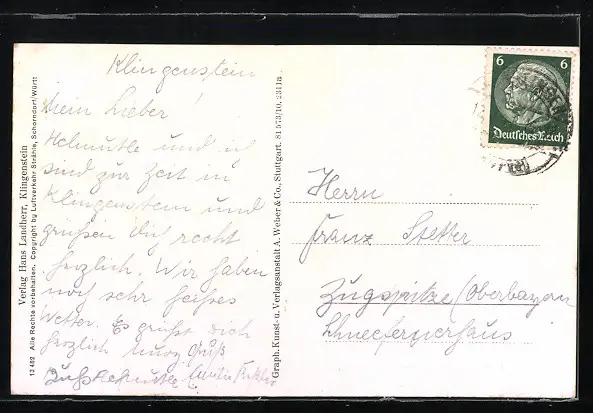 Klingenstein
Mein Lieber!
Helmutle und ich
sind zur Zeit in
Klingenstein und
grüßen Dich recht
herzlich. Wir haben
noch sehr heißes
Wetter. Es grüßt dich
herzlich Gruß
Helmutle
Verlag Hans Landherr, Klingenstein
13 482 Alle Rechte vorbehalten. Copyright by Luftverkehr Strähle, Schorndorf/Württ
Graph. Kunst- u. Verlagsanstalt A. Weber & Co., Stuttgart. 81 573/10. 2311a
6 6
Deutsches Reich
Herrn
Franz Stetter
Zugspitze/Oberbayern
Schneefernerhaus